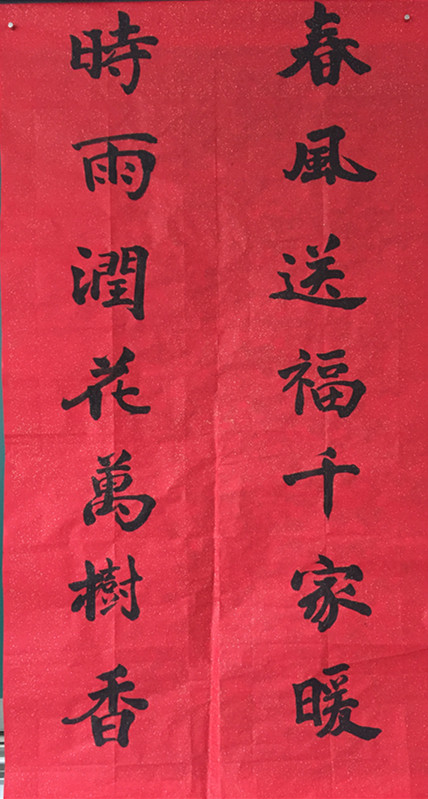 春風送福千家暖
時雨潤花萬樹香